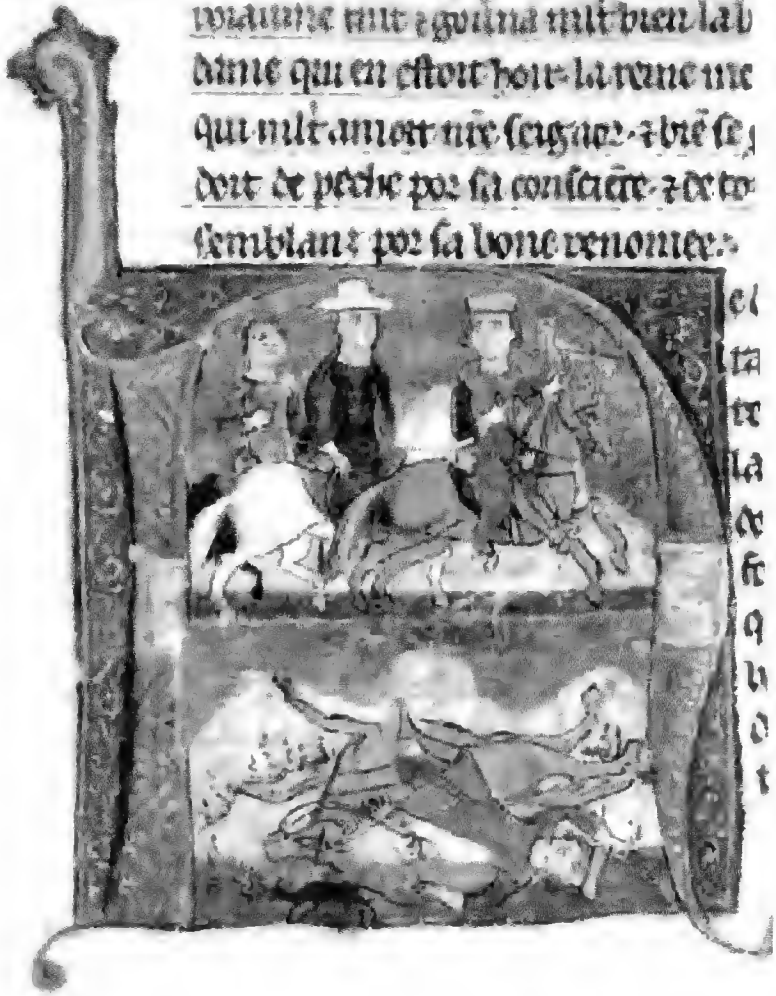 tint ⁊ goũna mlt bien la b
dame qui en estoit hoir. la roine me
qui mlt amoit nr̃e seignor. ⁊ biẽ se g
doit de peche por sa consciẽce. ⁊ de to
semblanz por sa bone renomee.
el
ta
te
la
de
q
t